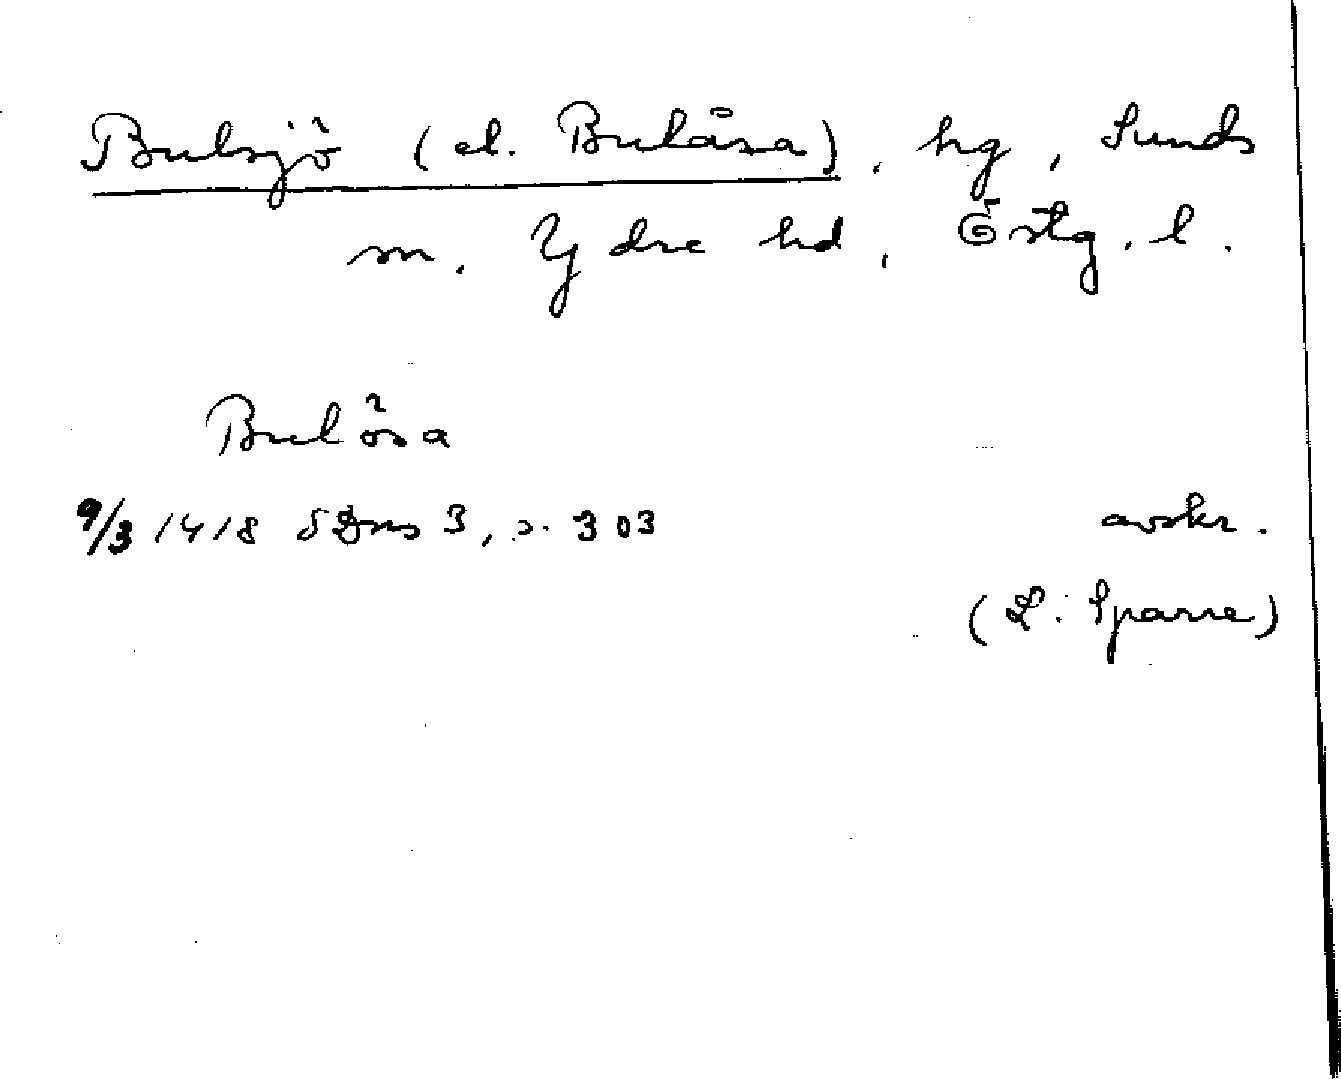 Bulsjö (el. Bulåsa), hg, Sunds
sn. Ydre hd, Östg. l.
Bulösa
9/3 1418 SDns 3, s. 303
avskr.
(L. Sparre)